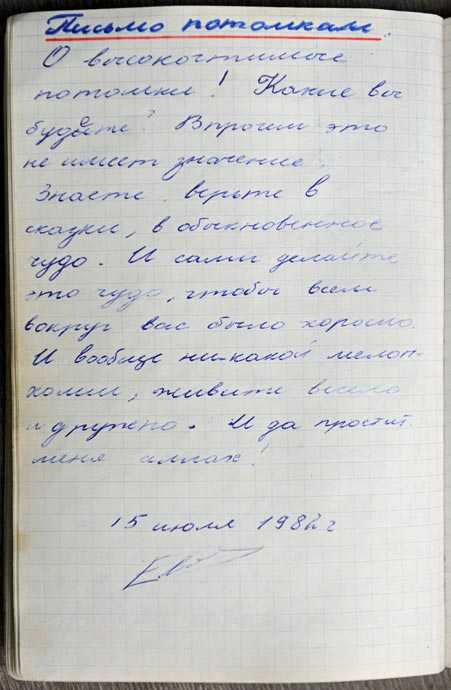 Письмо потомкам.
О высокочтимые
потомки! Какие вы
будете? Впрочем это
не имеет значение.
Знаете верьте в
сказки, в обыкновенное
чудо. И сами делайте
это чудо, чтобы всем
вокруг вас было хорошо.
И вообще ни-какой мелан-
холии, живите весело
и дружно. И да простит
меня аллах!
15 июля 198 г